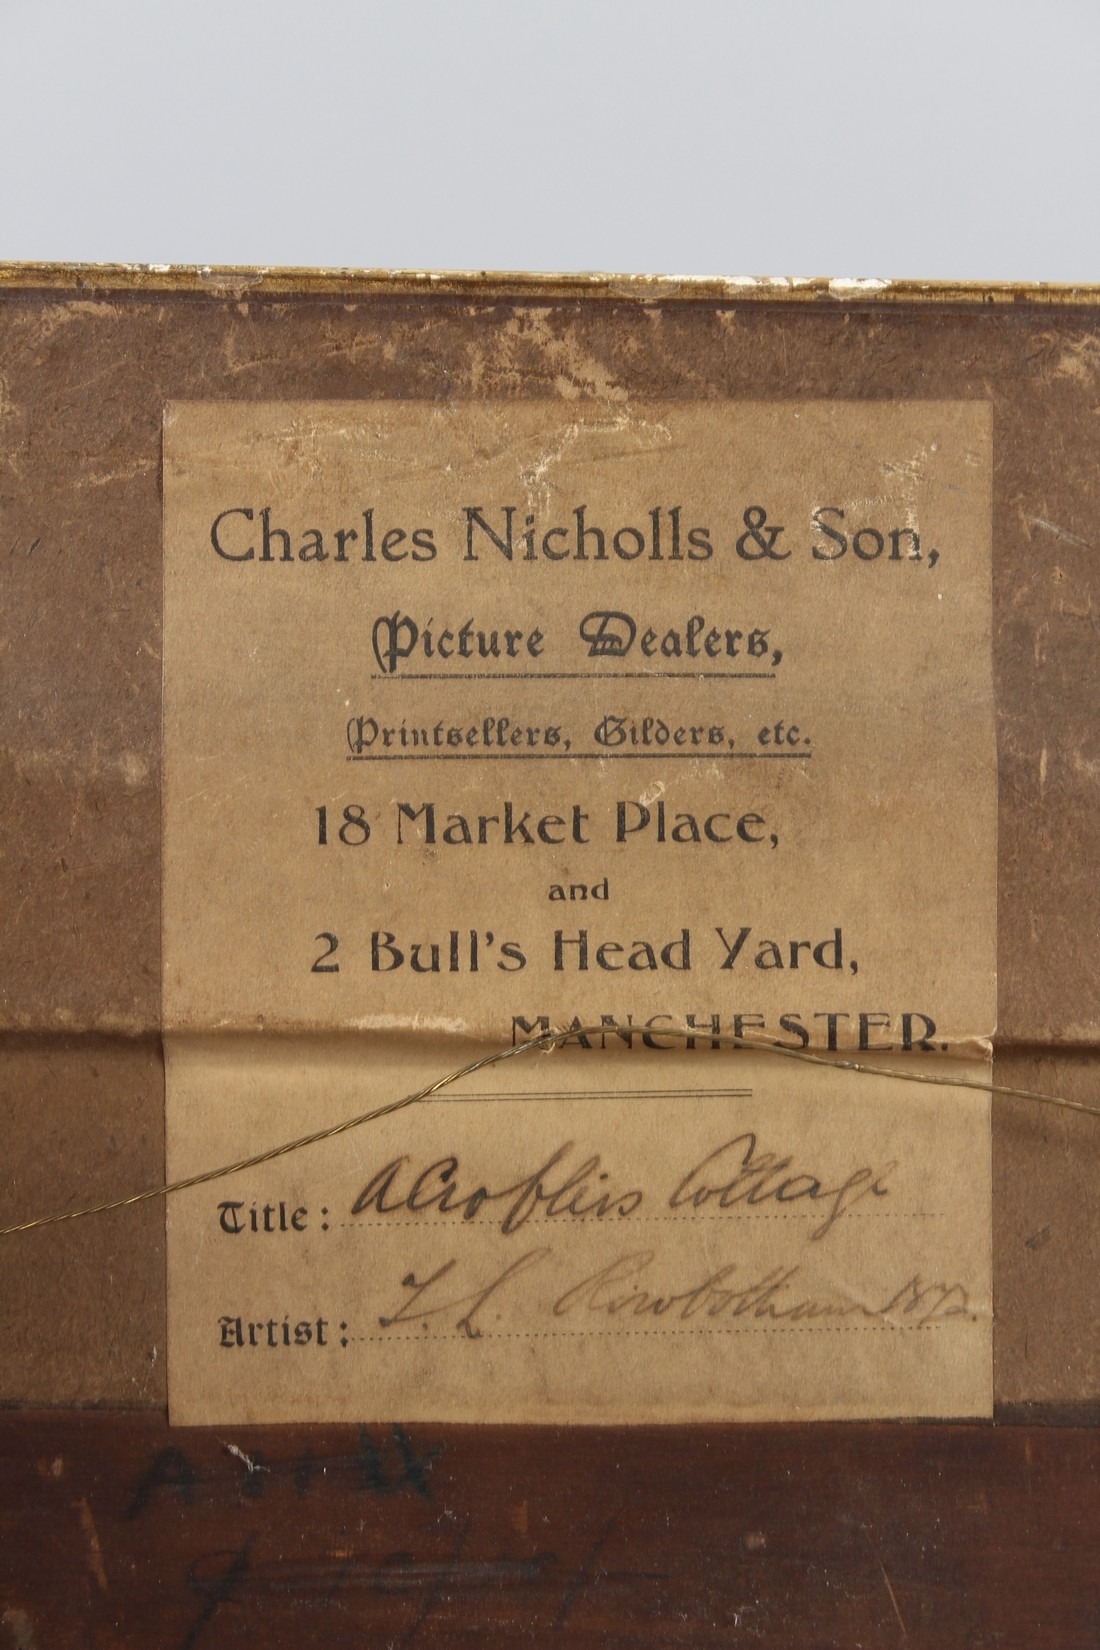 Charles Nicholls & Son,
Picture Dealers,
Printsellers, Gilders, etc.
18 Market Place,
and
2 Bull's Head Yard,
MANCHESTER.
Title: A Crofters Cottage
Artist: T. L. Rowbotham 1872.